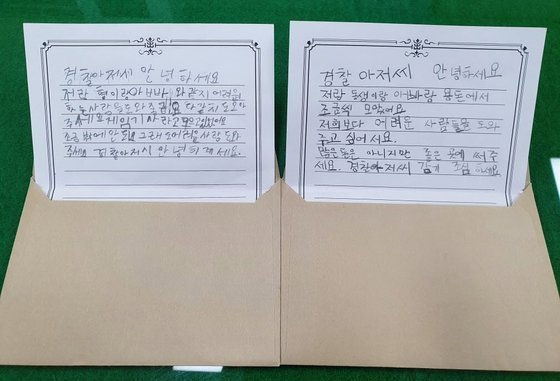 경찰아저씨 안녕하세요
저랑 형이랑아빠랑 와같이 어려운
하는사람들도와주
조금 밖에 안되 그래도어려운사람도와
주세요 경찰아저시 안녕히계세요.
경찰 아저씨 안녕하세요
저랑 동생이랑 아빠랑 용돈에서
조금씩 모았어요
저희보다 어려운 사람들을 도와
주고 싶어서요.
많은돈은 아니지만 좋은 곳에 써주
세요. 경찬아저씨 감기 조심 하세요